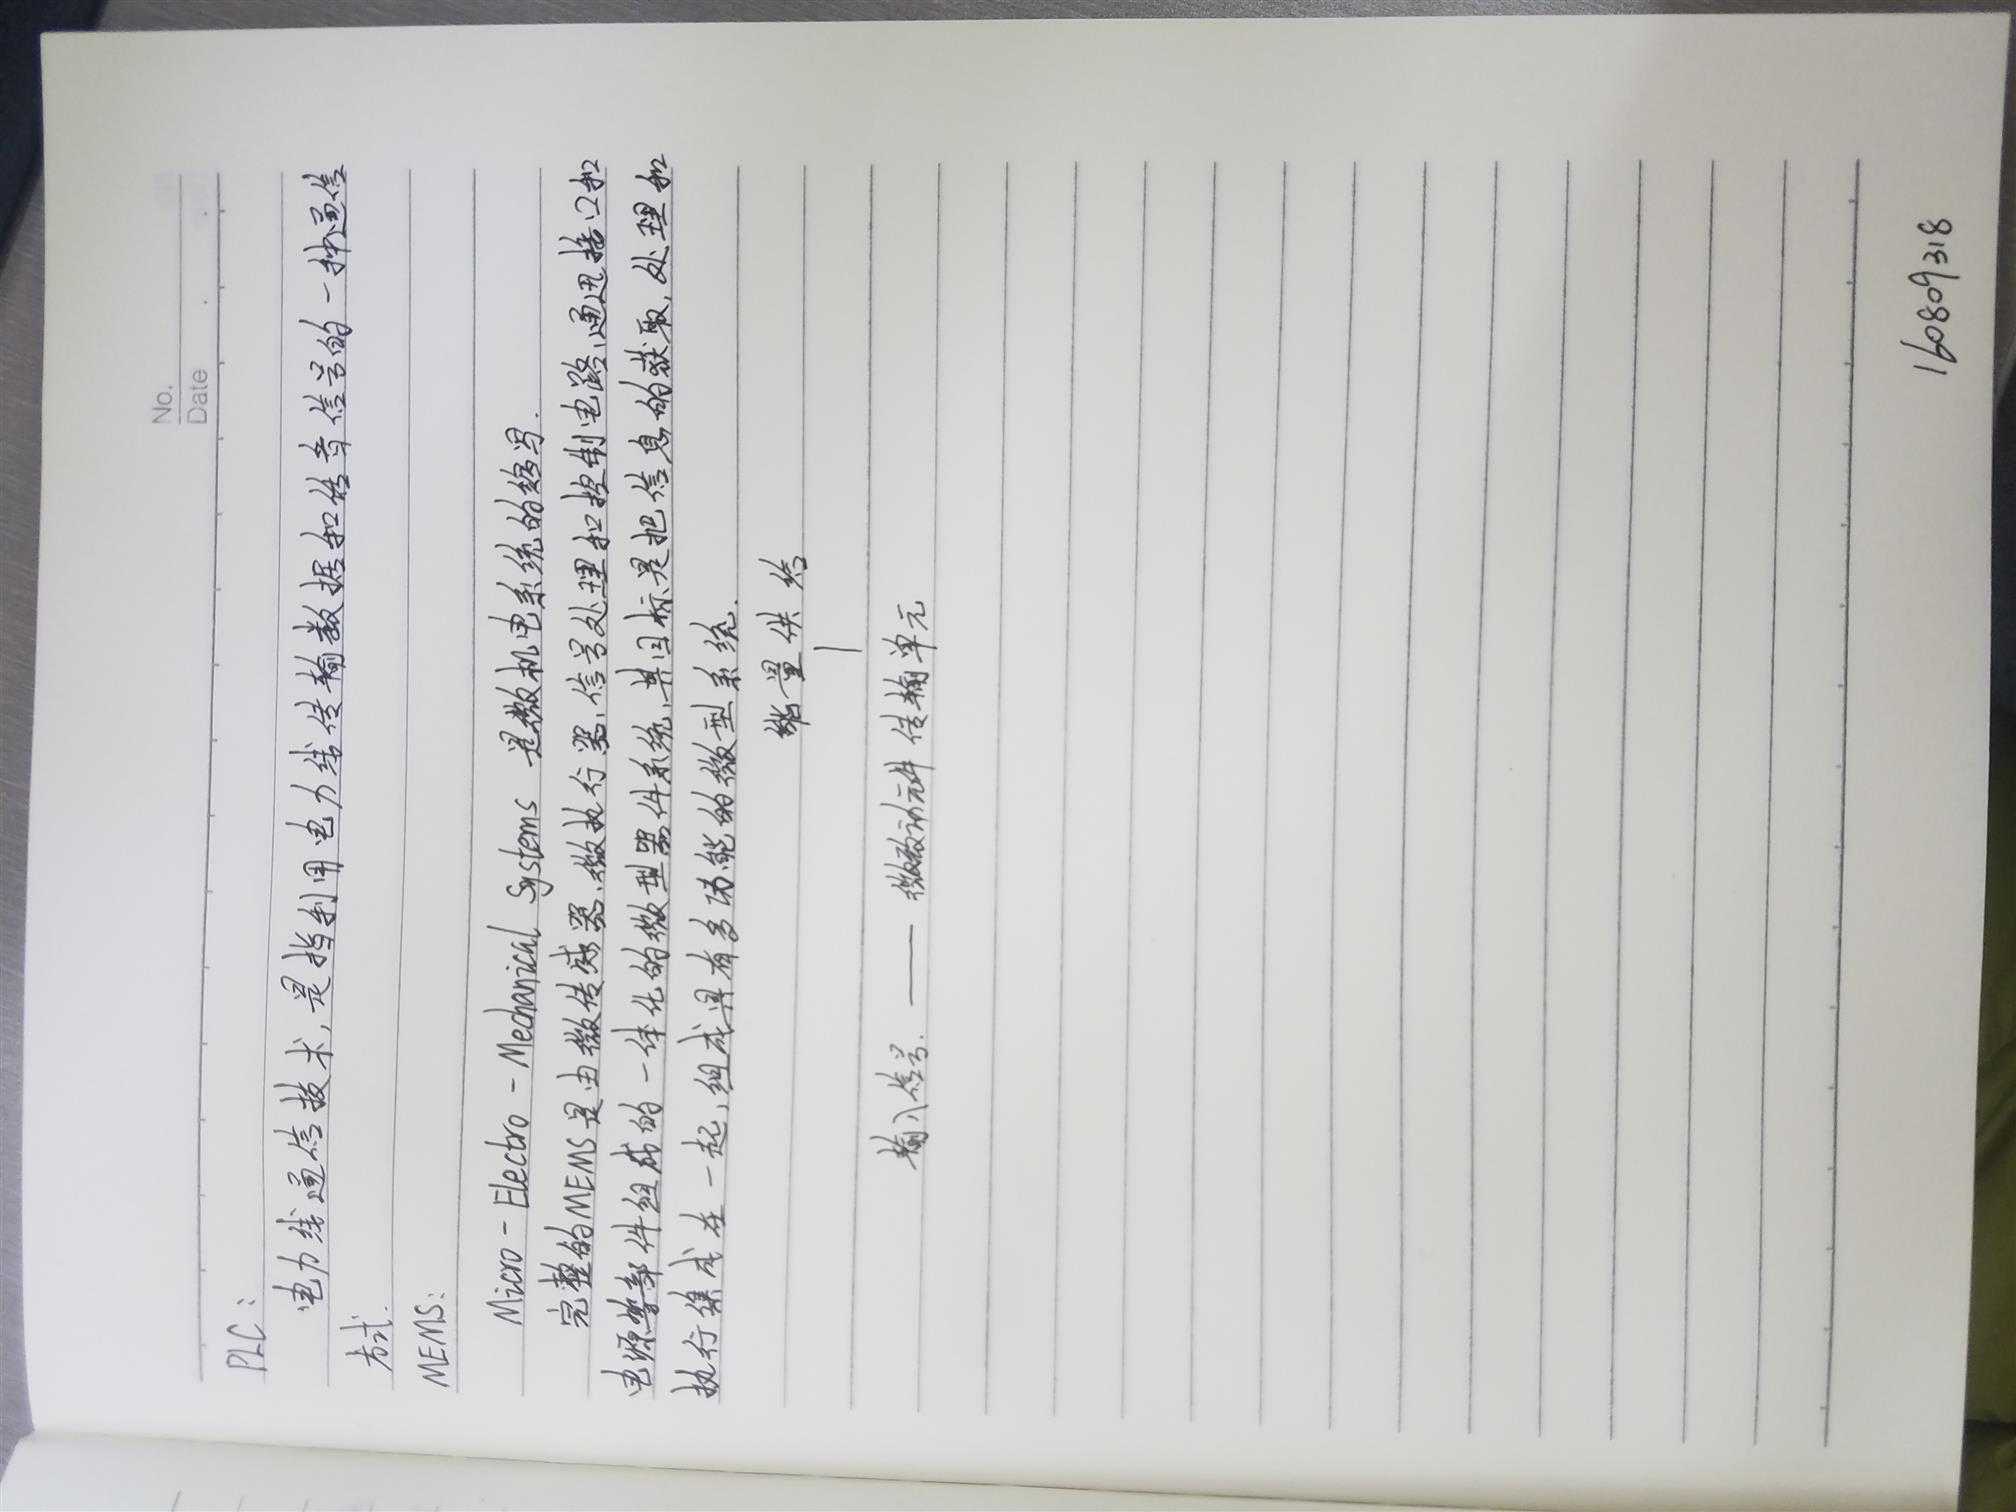 No.
Date
PLC:
电力线通信技术,是指利用电力线传输数据和传音信号的一种通信
方式.
MEMS:
Micro-Electro-Mechanical Systems 是微机电系统的缩写.
完整的MEMS是由微传感器、微执行器、信号处理和控制电路、通迅接口和
电源等部件组成的一体化的微型器件系统,其目标是把信息的获取、处理和
执行集成在一起,组成具有多功能的微型系统.
能量供给
输入信号. —— 微致动元件 传输单元
160809318